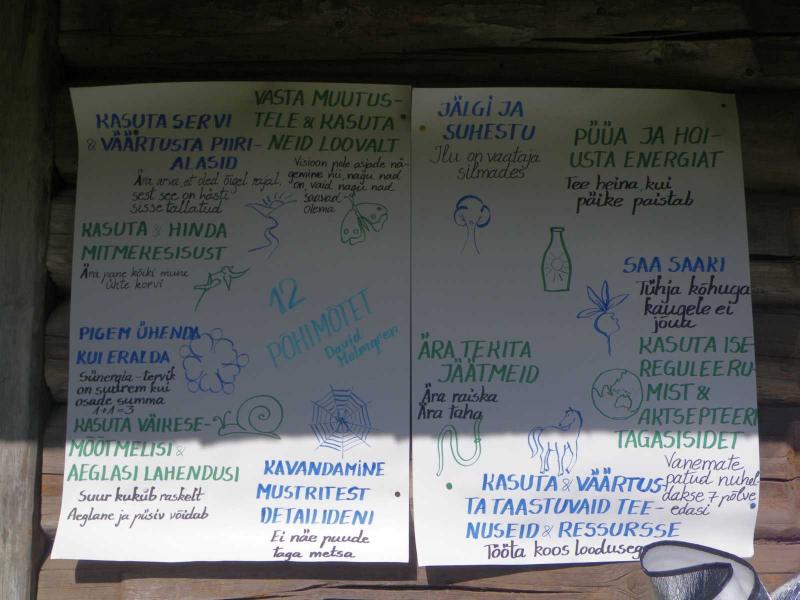 KASUTA SERVI
& VÄÄRTUSTA PIIRI-
ALASID
Ära arva, et oled õigel rajal,
sest see on hästi
sisse tallatud
VASTA MUUTUS-
TELE & KASUTA
NEID LOOVALT
Visioon pole asjade nä-
gemine nii, nagu nad
on, vaid nagu nad
saavad
olema
KASUTA & HINDA
MITMEKESISUST
Ära pane kõiki mune
ühte korvi
12
PÕHIMÕTET
David
Holmgren
PIGEM ÜHENDA
KUI ERALDA
Sünergia - tervik
on suurem kui
osade summa
1+1=3
KASUTA VÄIKESE-
MÕÕTMELISI &
AEGLASI LAHENDUSI
Suur kukub raskelt
Aeglane ja püsiv võidab
KAVANDAMINE
MUSTRITEST
DETAILIDENI
Ei näe puude
taga metsa
JÄLGI JA
SUHESTU
Ilu on vaataja
silmades
PÜÜA JA HOI-
USTA ENERGIAT
Tee heina, kui
päike paistab
SAA SAAKI
Tühja kõhuga
kaugele ei
jõua
ÄRA TEKITA
JÄÄTMEID
Ära raiska
Ära taha
KASUTA ISE-
REGULEERU-
MIST &
AKTSEPTEERI
TAGASISIDET
Vanemate
patud nuhel-
dakse 7 põlve
edasi
KASUTA & VÄÄRTUS-
TA TAASTUVAID TEE-
NUSEID & RESSURSSE
Tööta koos loodusega